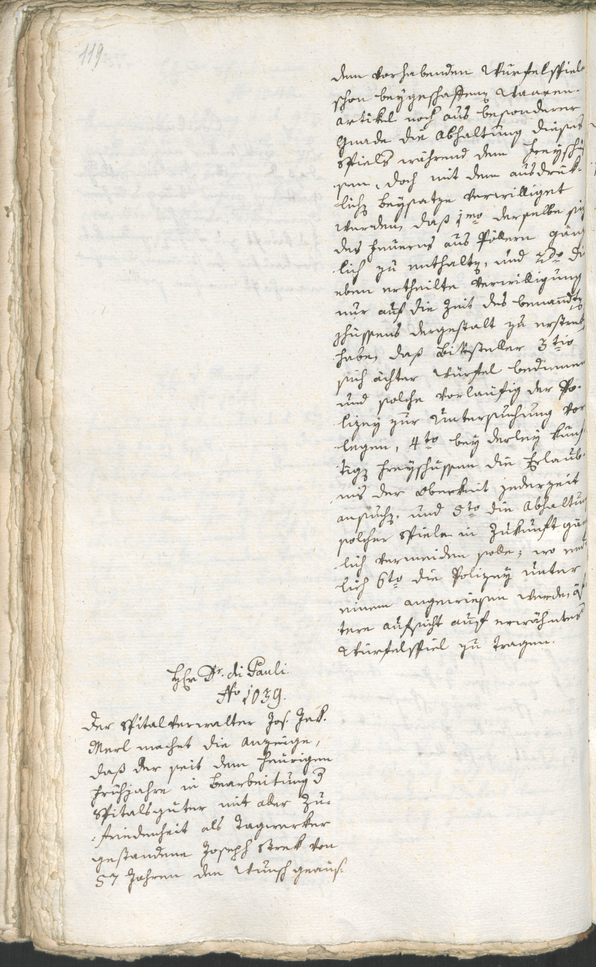 119
dem vorhabenden Würfelspiele
schon beygeschaften Waaren-
artikel noch aus besonderer
Gnade die Abhaltung dieses
Spiels während dem Freyschü
ssen, doch mit dem ausdrük-
lichen Beysatze verwilliget
werden, daß 1mo derselbe sich
des Feuerns aus Pölern gänz
lich zu enthalten, und 2do die
eben ertheilte Verwilligung
nur auf die Zeit des benannten
schüssens dergestalt zu erstreken
habe, daß Bittsteller 3tio
sich ächter Würfel bedienen
und solche vorläufig der Po-
lizey zur Untersuchung vor
legen, 4to bey derley künf
tigen Freyschüssen die Erlaub-
nis der Oberkeit jederzeit
ansuchen, und 5to die Abhaltung
solcher Spiele in Zukunft gänz
lich vermeiden solle; wo
lich 6to die Polizey unter
einem angewiesen werde,
tere Aufsicht auf erwähntes
Würfelspiel zu tragen.
Hr Dr. di Pauli
No 1039.
Der Spitalverwalter Jos. Jak.
Merl machet die Anzeige,
daß der seit dem heurigen
Frühjahre in Bearbeitung d
Spitalsgüter mit aller Zu-
friedenheit als Tagwerker
gestandene Joseph Strek von
57 Jahren den Wunsch geäus-